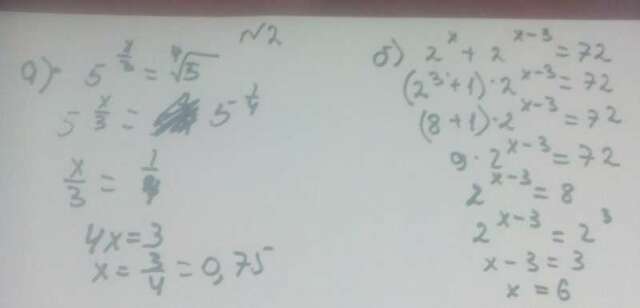 №2
а) 5^(x/3) = ⁴√5
5^(x/3) = 5^(1/4)
x/3 = 1/4
4x = 3
x = 3/4 = 0,75
б) 2^x + 2^(x-3) = 72
(2^3 + 1) · 2^(x-3) = 72
(8 + 1) · 2^(x-3) = 72
9 · 2^(x-3) = 72
2^(x-3) = 8
2^(x-3) = 2^3
x - 3 = 3
x = 6